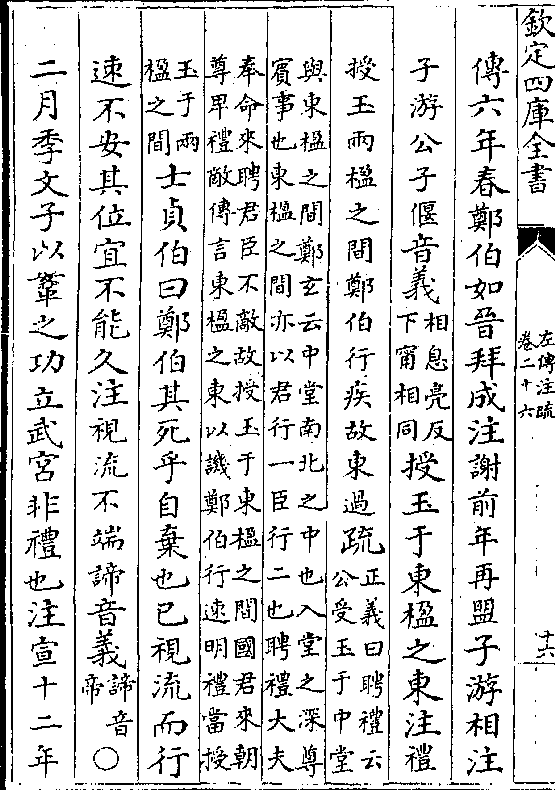 欽定四庫全書
左傳注疏
卷二十六
十六
傳六年春鄭伯如晉拜成注謝前年再盟子游相注
子游公子偃音義相息亮反下甯相同授玉于東楹之東注禮
授玉兩楹之間鄭伯行疾故東過疏正義曰聘禮云公受玉于中堂
與東楹之間鄭玄云中堂南北之中也入堂之深尊
賓事也東楹之間亦以君行一臣行二也聘禮大夫
奉命來聘君臣不敵故授玉于東楹之間國君來朝
尊卑禮敵傳言東楹之東以譏鄭伯行速明禮當授
玉于兩楹之間士貞伯曰鄭伯其死乎自棄也已視流而行
速不安其位宜不能久注視流不端諦音義諦音帝○
二月季文子以鞌之功立武宮非禮也注宣十二年